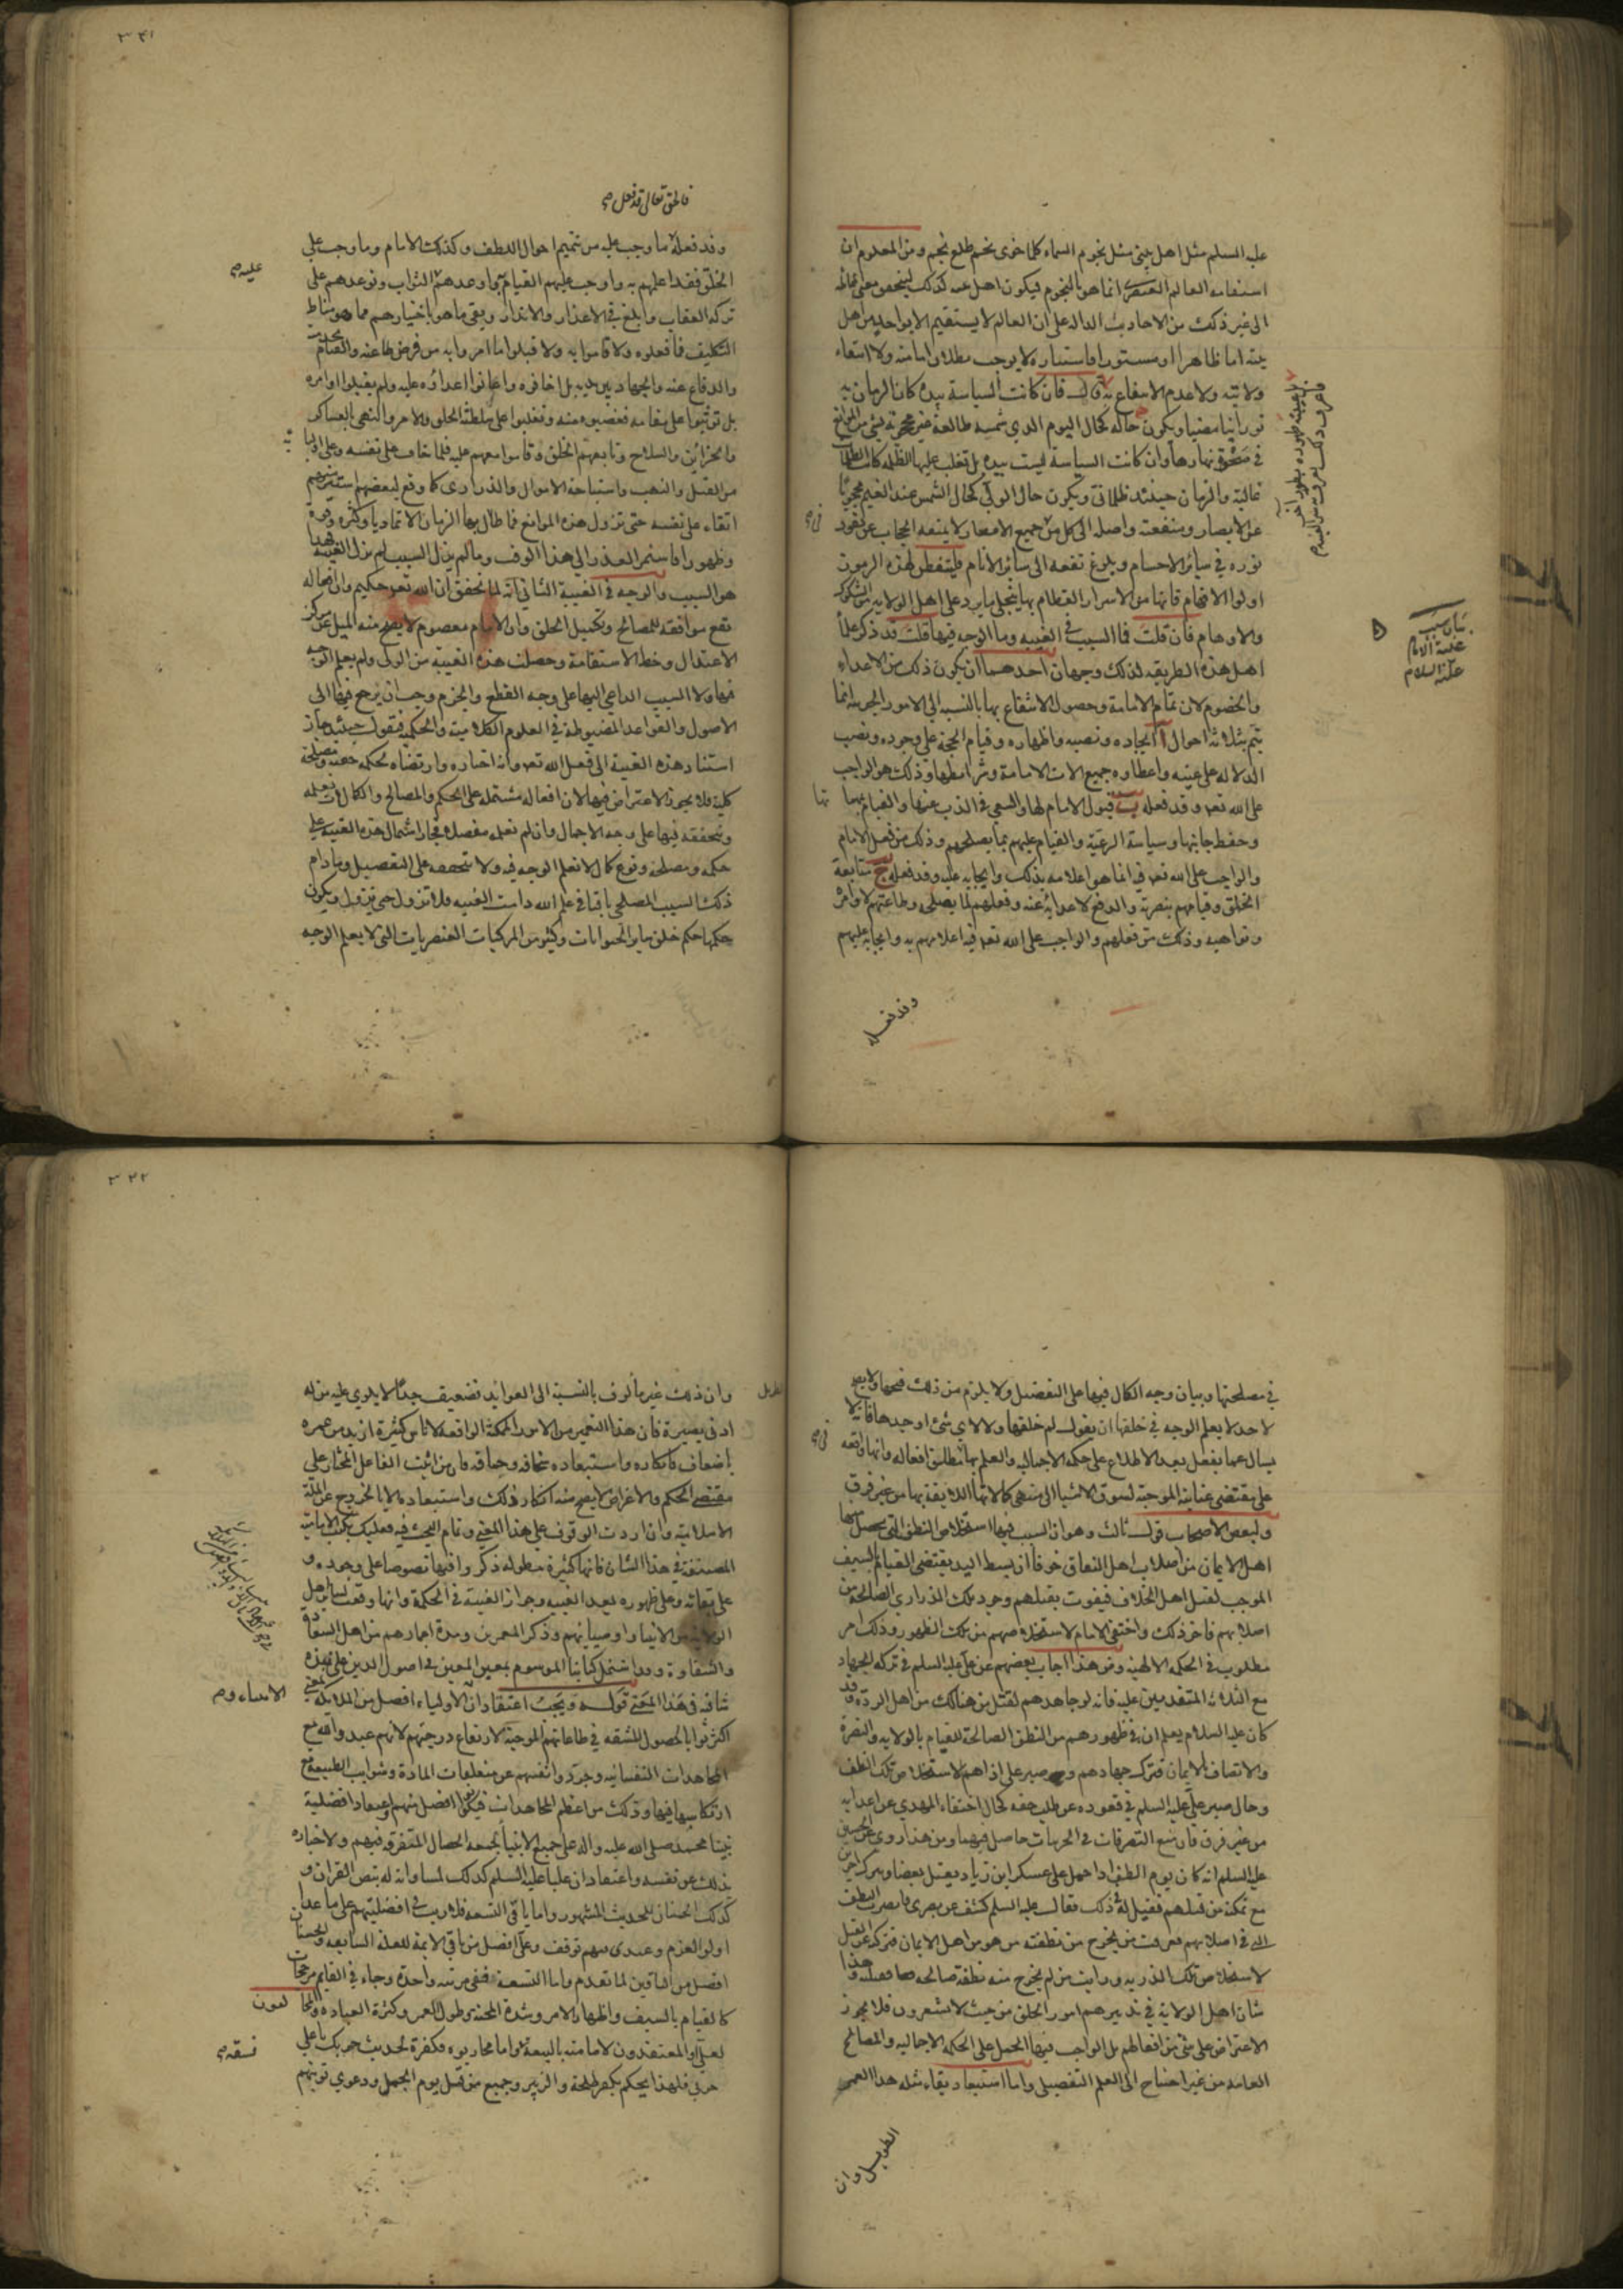 عليه السلم مثل اهل بيتي مثل نجوم السماء كلما خوى نجم طلع نجم ومن المعلوم ان
استقامه العالم العنصرى انما هو بالنجوم فيكون اهل بيته كذلك ليتحقق معنى
الى غير ذلك من الاحاديث الداله على ان العالم لا يستقيم الا بواحد من اهل
بيته اما ظاهرا او مستورا فاستتاره لا يوجب بطلان امامته ولا انتفاء
ولايته ولا عدم الانتفاع به فان كانت السياسة بيده كان الزمان به
نورانيا مضيئا ويكون حاله كحال اليوم الذي شمسه طالعة غير محجوبة بشئ من الموانع
في نهارها وان كانت السياسة ليست بيده بل تغلب عليها الظلمه كانت الظلمات
غالبة والزمان حينئذ ظلمانى ويكون حال الولى كحال الشمس عند الغيم محجوبا
عن الابصار ومنفعته واصله الى الكل من جميع الاقطار لا يمنعه الحجاب عن نفوذ
نوره في سائر الاجسام وبلوغ نفعه الى سائر الانام فليتفطن لهذه الرموز
اولوا الافهام فانها من الاسرار العظام بها ينجلى ما يرد على اهل الولايه من الشكوك
والاوهام فان قلت فما السبب في الغيبه وما الوجه فيها قلت قد ذكر علماء
اهل هذه الطريقه لذلك وجهان احدهما ان يكون ذلك من الاعداء
والخصوم لان تمام الامامة وحصول الانتفاع بها بالنسبه الى الامور انما
يتم بثلاثه احوال آ ايجاده ونصبه واظهاره وقيام الحجة على وجوده ونصب
الدلاله على عينه واعطاؤه جميع الات الامامة وشرائطها وذلك هو الواجب
على الله تعه وقد فعله ب قبول الامام لها والسعى في الذب عنها والقيام بها
وحفظ جانبها وسياسة الرعية والقيام عليهم بما يصلحهم وذلك من فعل الامام
والواجب على الله تعه فيه انما هو اعلامه بذلك وايجابه عليه وقد فعله ج متابعة
الخلق وقيامهم بنصرته والدفع لاعدائه عنه وفعلهم لما يصلحه وطاعتهم لاوامره
ونواهيه وذلك من فعلهم والواجب على الله تعه فيه اعلامهم به وايجابه عليهم
وقد فعله
بيان سبب
غيبة الامام
عليه السلام
٣٤١
فالحق تعالى قد فعل
وقد فعله ما وجب عليه من تتميم احوال اللطف وكذلك الامام وما وجب على
الخلق فقد اعلمهم به واوجب عليهم القيام به ووعدهم الثواب وتوعدهم على
عليه
تركه العقاب وابلغ في الاعذار والانذار وبقى ما هو باختيارهم مما هو مناط
التكليف فما فعلوه ولا قاموا به ولا قبلوا ما امروا به من فرض طاعته والقيام
والدفاع عنه والجهاد بين يديه بل اخافوه واعانوا اعداؤه عليه ولم يقبلوا اوامره
بل توثبوا على مقامه فغصبوه منه وتغلبوا على سلطنة الخلق والامر والنهى بالعساكر
والخزائن والسلاح وتابعهم الخلق وقاموا معهم عليه فلما خاف على نفسه وعلى
من القتل والنهب واستباحة الاموال والذرارى كما وقع لبعضهم استتر عنهم
اتقاء على نفسه حتى تزول هذه الموانع فما طال بها الزمان الا تماديا وكثره وقوة
وظهورا فاستمر العذر الى هذا الوقت وما لم يزل السبب لم تزل الغيبة فهذا
هو السبب والوجه في الغيبة الثانى انه لما تحقق ان الله تعه حكيم وان افعاله
تقع موافقه للمصالح وتكميل الخلق وان الامام معصوم لا يقع منه الميل عن مركز
الاعتدال وخط الاستقامة وحصلت هذه الغيبة من الولى ولم يعلم الوجه
فيها ولا السبب الداعى اليها على وجه القطع والجزم وجب ان يرجع فيها الى
الاصول والقواعد المضبوطة في العلوم الكلاميه والحكميه فيقول حينئذ جاز
استناد هذه الغيبة الى فعل الله تعه وانه اختاره وارتضاه لحكمه خفيه ومصلحة
كلية فلا يجوز الاعتراض فيها لان افعاله مشتمله على الحكم والمصالح والكمالات نعلمه
ونتحققه فيها على وجه الاجمال وان لم نعلمه مفصلا فجاز اشتمال هذه الغيبة على
حكمه ومصلحة ونوع كمال لا نعلم الوجه فيه ولا نتحققه على التفصيل وما دام
ذلك السبب المصلحى باقيا في علم الله دامت الغيبه فلا تزول حتى يزول ويكون
حكمها حكم خلق سائر الحيوانات وكثير من المركبات العنصريات التى لا يعلم الوجه
في مصلحتها وبيان وجه الكمال فيها على التفصيل ولا يلزم من ذلك قبحها ولا يصح
لاحد لا يعلم الوجه في خلقها ان يقول لم خلقها ولا لاي شئ اوجدها فانه لا
يسال عما يفعل بعد الاطلاع على حكمه الاجماليه والعلم بها بمطلق افعاله وانها واقعه
على مقتضى عنايته الموجبه لسوق الاشيا الى منتهى كمالاتها اللايقة بها من غير فرق
ولبعض الاصحاب قول ثالث وهو ان السبب فيها استخلاص النطف التى يحصل منها
اهل الايمان من اصلاب اهل النفاق خوفا ان بسط اليد يقتضى القيام بالسيف
الموجب لقتل اهل الخلاف فيفوت بقتلهم وجود تلك الذرارى الصالحة من
اصلابهم فاخر ذلك واختفى الامام لاستخلاصهم من تلك الظهور وذلك امر
مطلوب في الحكمه الالهيه ومن هذا اجاب بعضهم عن على عليه السلم في تركه الجهاد
مع الثلاثه المتقدمين عليه فانه لو جاهدهم لقتل من هنالك من اهل الردة وقد
كان عليه السلام يعلم ان في ظهورهم من النطف الصالحة للقيام بالولايه والنصرة
والاتصاف بالايمان فترك جهادهم وصبر على اذاهم لاستخلاص تلك النطف
وحال صبر على عليه السلم في قعوده عن طلب حقه كحال اختفاء المهدي عن اعدائه
من غير فرق فان منع التصرفات في الجزئيات حاصل فيهما ومن هذا روى عن الحسين
عليه السلم انه كان يوم الطف اذا حمل على عسكر ابن زياد يقتل بعضا ويترك اخرين
مع تمكنه من قتلهم فقيل له في ذلك فقال عليه السلم كشف عن بصرى فابصرت النطف
التى في اصلابهم فعرفت من يخرج من نطفته من هو من اهل الايمان فتركه عن القتل
لاستخلاص تلك الذريه ورايت من لم يخرج منه نطفة صالحه فقتلته وهذا
شان اهل الولاية في تدبيرهم امور الخلق من حيث لا يشعرون فلا يجوز
الاعتراض على شئ من افعالهم بل الواجب فيها الحمل على الحكمه الاجماليه والمصالح
العامه من غير احتياج الى العلم التفصيلى واما استبعاد بقاء مثله هذا العمر
الطويل وان
٣٤٢
وان ذلك غير مألوف بالنسبة الى العوايد فضعيف جدا لا يلوي عليه من له
ادنى بصيرة فان هذا التعمير من الامور الممكنة الواقعه لاناس كثيرة ازيد من عمره
باضعاف فانكاره واستبعاده سخافه وحماقه فان من اثبت الفاعل المختار على
مقتضى الحكم والاغراض لا يصح منه انكار ذلك واستبعاده الا بالخروج عن الملة
الاسلاميه وان اردت الوقوف على هذا المعنى وتمام البحث فيه فعليك بكتب الاماميه
المصنفة في هذا الشان فانها كثيرة مطوله ذكروا فيها نصوصا على وجوده و
على بقائه وعلى ظهوره بعد الغيبه وجواز الغيبة في الحكمة وانها وقعت لسائر اهل
الولايه من الانبياء واوصيائهم وذكر المعمرين ومدة اعمارهم من اهل السعادة
والشقاوة وقد اشتمل كتابنا الموسوم بمعين المعين في اصول الدين على نبذه
شافيه في هذا المعنى قوله ويجب اعتقاد ان الاولياء افضل من الملايكه
اكثر ثوابا لحصول المشقه في طاعاتهم الموجبة لارتفاع درجتهم لانهم عبدوا الله مع
المجاهدات النفسانيه وجردوا انفسهم عن متعلقات المادة وشوايب الطبيعه مع
ارتكاسها فيها وذلك من اعظم المجاهدات فيكونوا افضل منهم واعتقاد افضلية
نبينا محمد صلى الله عليه واله على جميع الانبيا بجمعه الخصال المتفرقه فيهم ولاخباره
بذلك عن نفسه واعتقاد ان عليا عليه السلم كذلك لمساواته له بنص القران و
كذلك الحسنان للحديث المشهور واما باقى التسعه فلا ريب في افضليتهم على ما عدا
اولو العزم وعندى فيهم توقف وعلى افضل من باقى الايمة للعله السابقه والحسنان
افضل من الباقين لما تقدم واما التسعة ففى مرتبه واحدة وجاء في القايم مرجحات
كالقيام بالسيف واظهار الامر وشدة المحنه وطول العمر وكثرة العباده والمخالفون
لعلى والمعتقدون لامامته بالبيعة فسقه واما محاربوه فكفرة لحديث حربك يا على
حربى فلهذا يحكم بكفر طلحة والزبير وجميع من قتل يوم الجمل ودعوي توبتهم